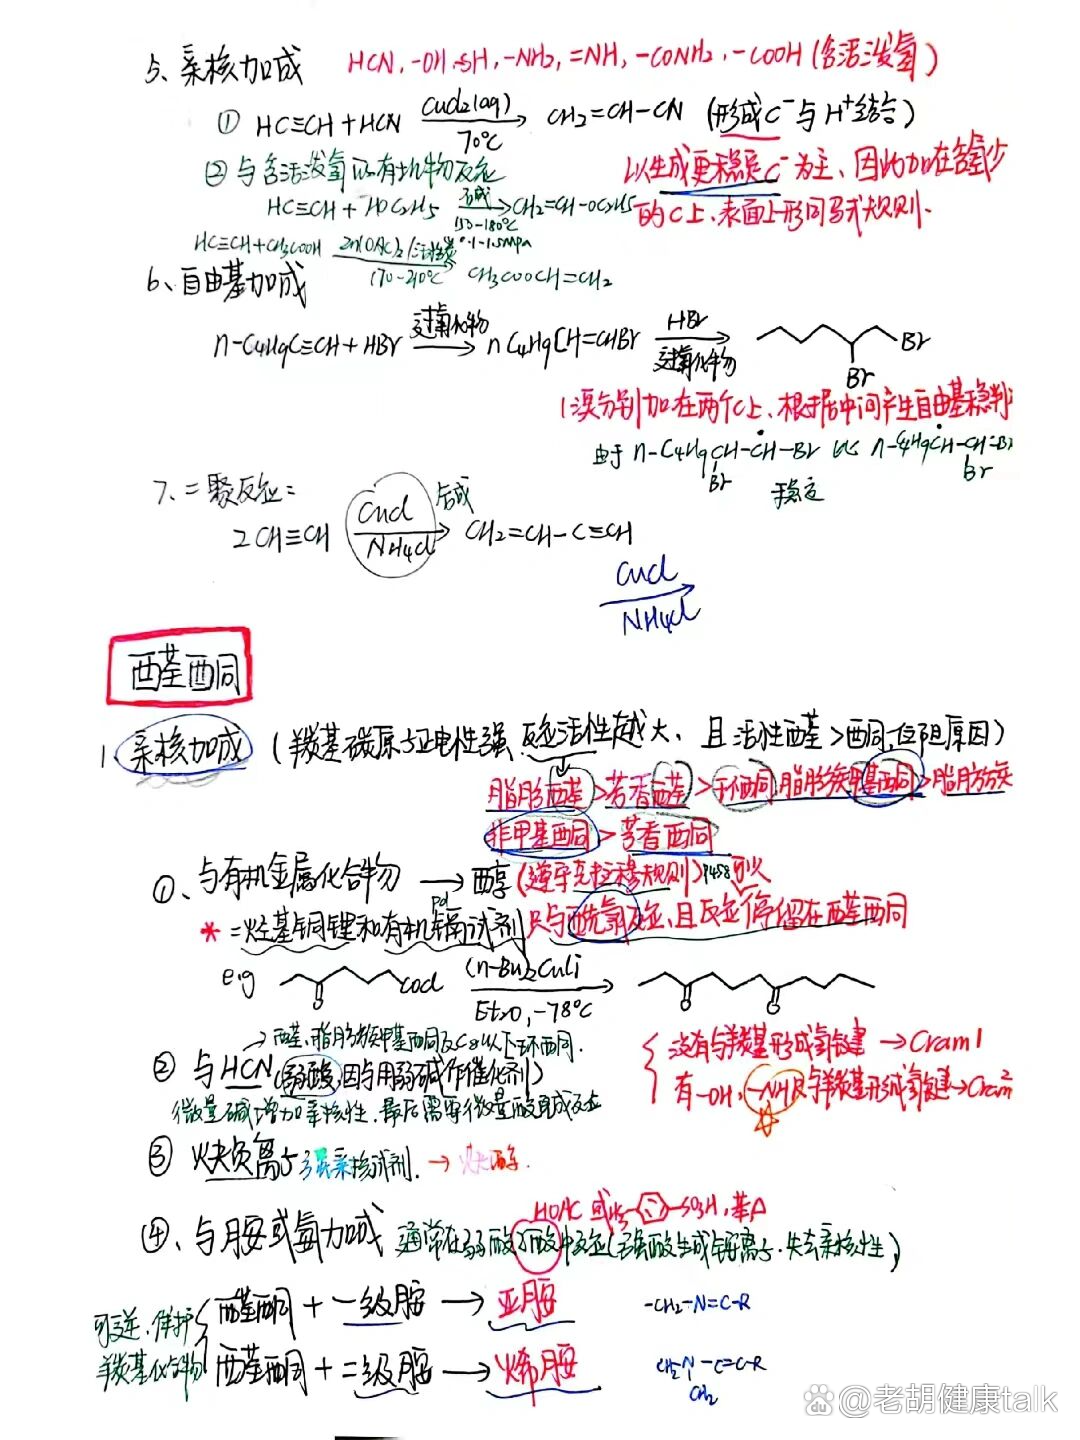 5、亲核加成 HCN,-OH,-SH,-NH2,=NH,-CONH2,-COOH(含活泼氢)
① HC≡CH+HCN CuCl2(aq) 70℃ CH2=CH-CN (形成C⁻与H⁺结合)
② 与含活泼氢的有机物反应
以生成更稳定C⁻为主、因此加在含氢少
的C上、表面上形同马式规则.
HC≡CH + HOC2H5 碱 150-180℃ CH2=CH-OC2H5
0.1-1.5MPa
HC≡CH+CH3COOH Zn(OAc)2/活性炭 170-210℃ CH3COOCH=CH2
6、自由基加成
n-C4H9C≡CH+HBr 过氧化物 n C4H9CH=CHBr HBr 过氧化物 Br
Br
(溴分别加在两个C上、根据中间产生自由基稳判
由于 n-C4H9CH-CH-Br 比 n-C4H9CH-CH-Br
Br Br
稳定
7、二聚反应:
2CH≡CH CuCl NH4Cl CH2=CH-C≡CH
CuCl
NH4Cl
醛酮
1、亲核加成 (羰基碳原子正电性强、反应活性越大、且活性醛>酮,位阻原因)
脂肪醛>芳香醛>环酮,脂肪族甲基酮>脂肪族
非甲基酮>芳香酮
①、与有机金属化合物 → 醇(遵守克拉穆规则)P458
* =烃基铜锂和有机镉试剂 只与酰氯反应,且反应停留在醛酮
e.g COCl (n-Bu)2CuLi Et2O,-78℃
O O O
→ 醛、脂肪族甲基酮及C8以下环酮.
② 与HCN(弱酸,因与用弱碱作催化剂)
微量碱增加亲核性,最后需要微量酸完成反应
没有与羰基形成氢键 → Cram1
有-OH,-NHR与羰基形成氢键→Cram2
③ 炔负离子 强亲核试剂. → 炔醇.
HOAC 或 H3C SO3H,苯△
④、与胺或氨加成 通常在弱酸中反应(强酸生成铵离子.失去亲核性)
可逆、保护
羰基化合物
醛酮 + 一级胺 → 亚胺 -CH2-N=C-R
醛酮 + 二级胺 → 烯胺 CH2-N-C=C-R
CH2
@老胡健康talk